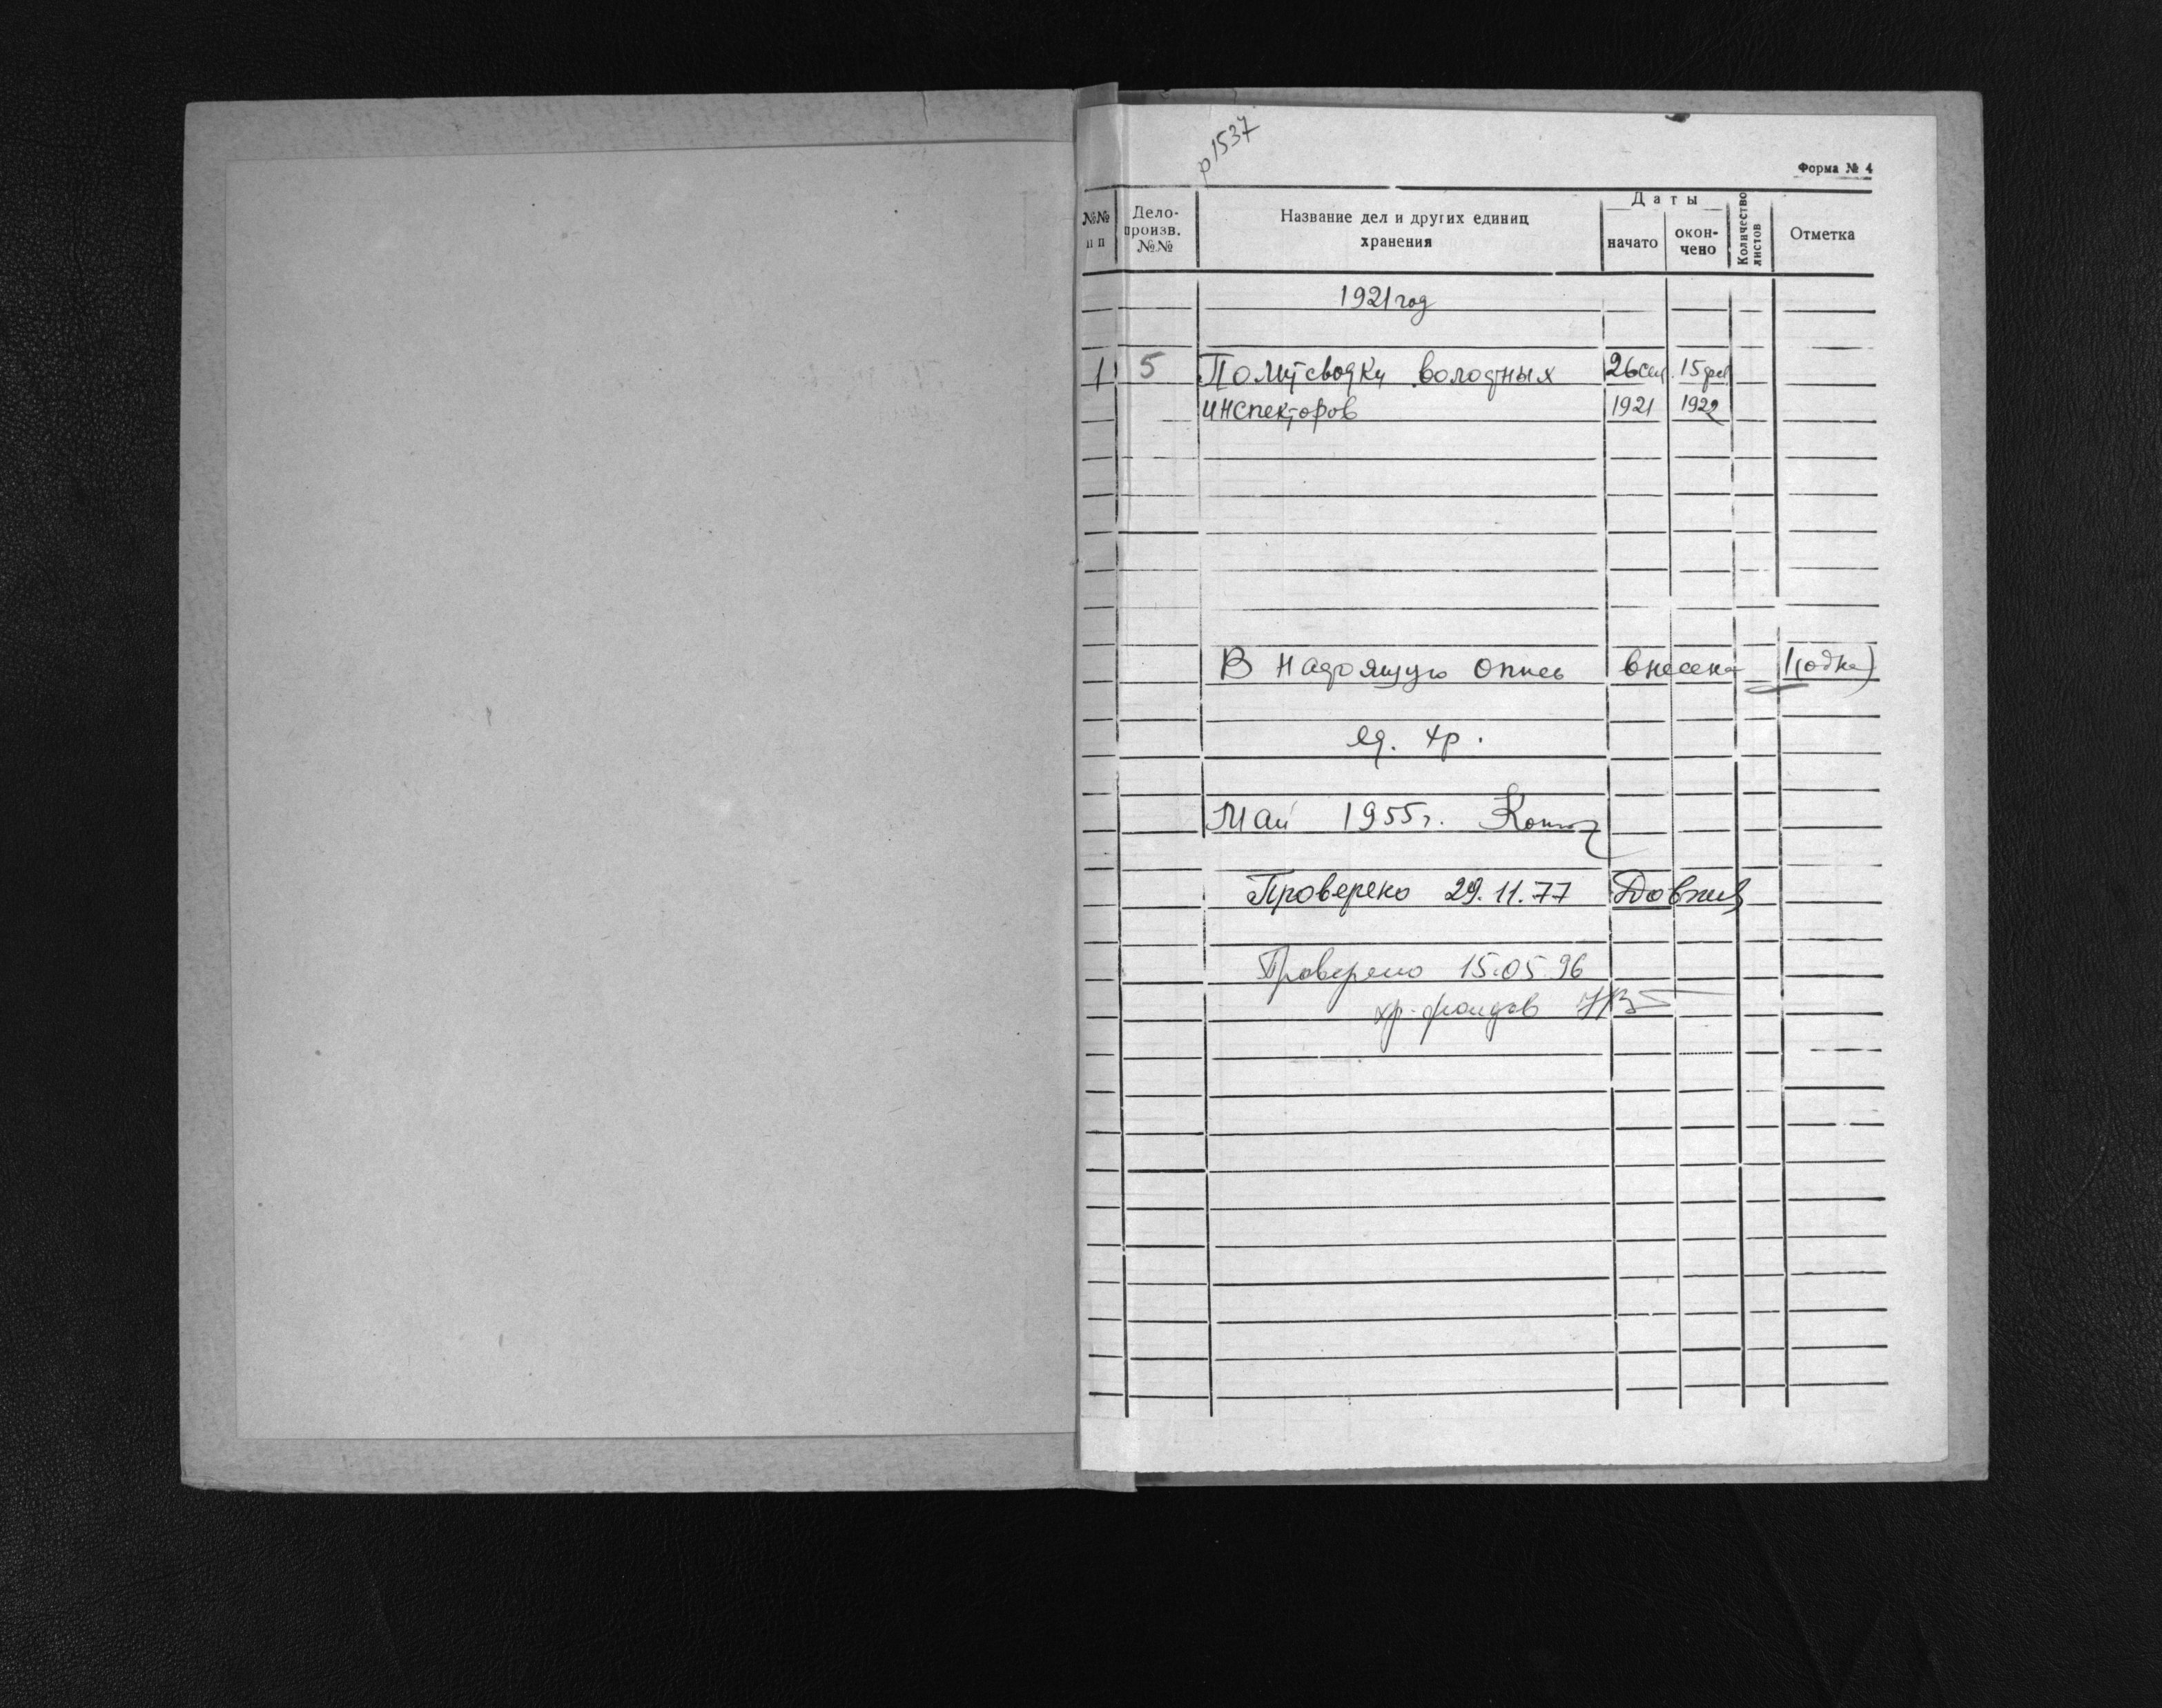 р1537
Форма № 4
№№ п п
Дело-произв. №№
Название дел и других единиц хранения
Даты
начато
окончено
Количество листов
Отметка
1921 год
1 5 Политсводки волостных 26 сен. 15 фев
инспекторов 1921 1922
В настоящую опись внесена 1 (одна)
ед. хр.
Май 1955 г.
Проверено 29.11.77
Проверено 15.05.96
хр. фондов